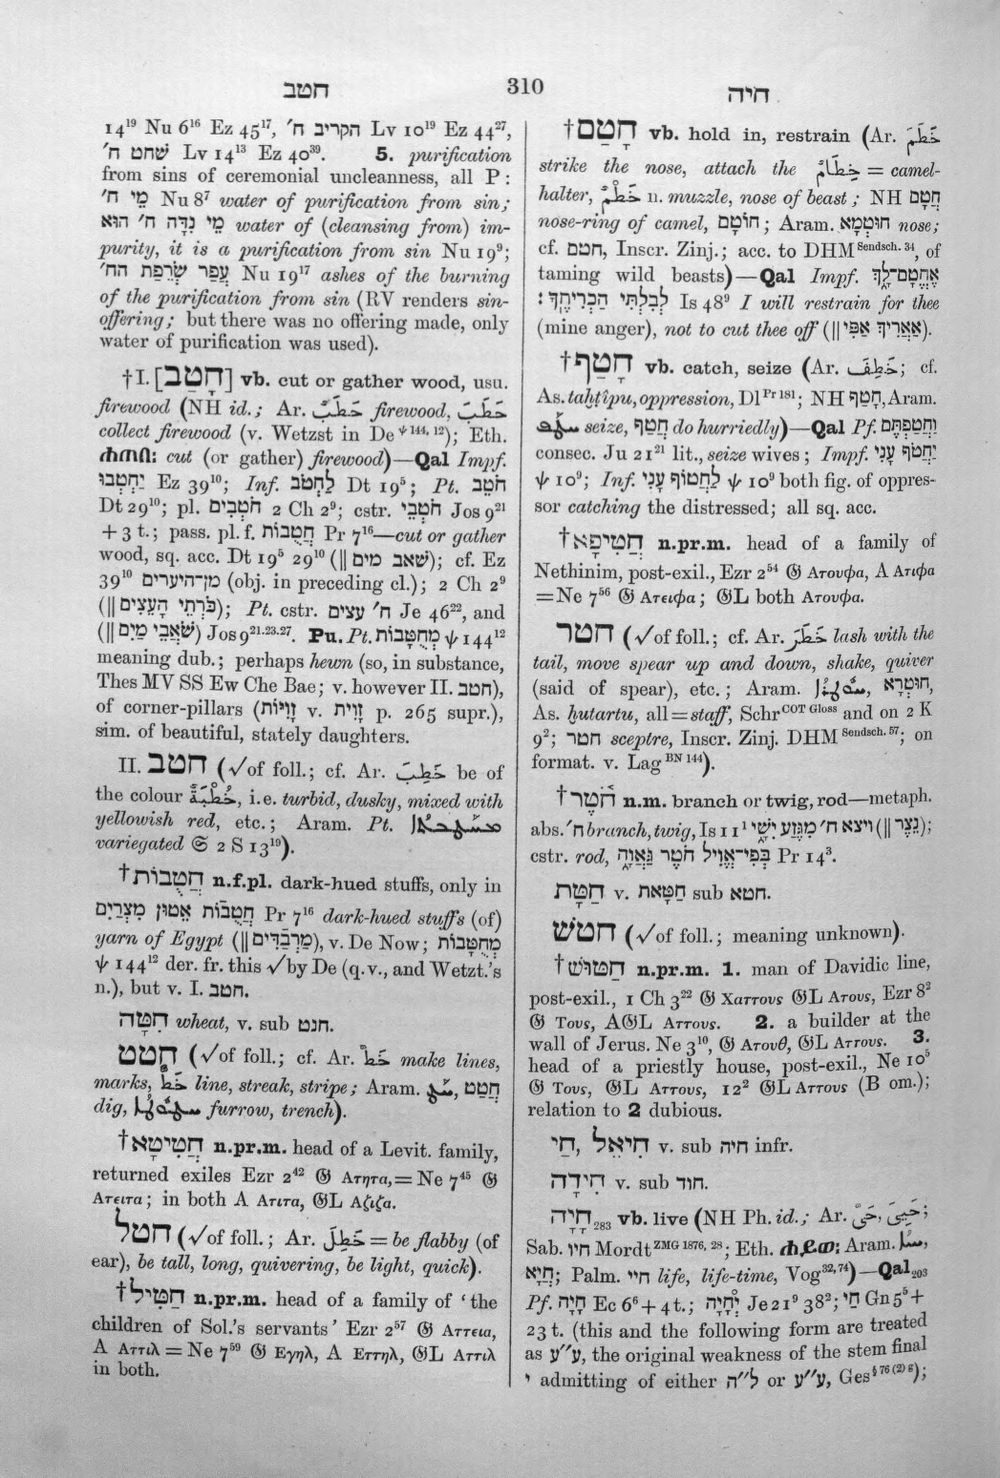 חטב
310
חיה
14¹⁹ Nu 6¹⁶ Ez 45¹⁷, הקריב ח׳ Lv 10¹⁹ Ez 44²⁷,
שחט ח׳ Lv 14¹³ Ez 40³⁹. 5. purification
from sins of ceremonial uncleanness, all P:
מֵי ח׳ Nu 8⁷ water of purification from sin;
מֵי נִדָּה ח׳ הוּא water of (cleansing from) im-
purity, it is a purification from sin Nu 19⁹;
עֲפַר שְׂרֵפַת הח׳ Nu 19¹⁷ ashes of the burning
of the purification from sin (RV renders sin-
offering; but there was no offering made, only
water of purification was used).
†I. [חָטַב] vb. cut or gather wood, usu.
firewood (NH id.; Ar. حَطَبٌ firewood, حَطَبَ
collect firewood (v. Wetzst in De ψ 144, 12); Eth.
cut (or gather) firewood)—Qal Impf.
יַחְטְבוּ Ez 39¹⁰; Inf. לַחְטֹב Dt 19⁵; Pt. חֹטֵב
Dt 29¹⁰; pl. חֹטְבִים 2 Ch 2⁹; cstr. חֹטְבֵי Jos 9²¹
+ 3 t.; pass. pl. f. חֲטֻבוֹת Pr 7¹⁶—cut or gather
wood, sq. acc. Dt 19⁵ 29¹⁰ (‖ שׁאב מים); cf. Ez
39¹⁰ מִן־היערים (obj. in preceding cl.); 2 Ch 2⁹
(‖ כֹּרְתֵי הָעֵצִים); Pt. cstr. ח׳ עצים Je 46²², and
(‖ שֹׁאֲבֵי מַיִם) Jos 9²¹·²³·²⁷. Pu. Pt. מְחֻטָּבוֹת ψ 144¹²
meaning dub.; perhaps hewn (so, in substance,
Thes MV SS Ew Che Bae; v. however II. חטב),
of corner-pillars (זָוִיּוֹת v. זָוִית p. 265 supr.),
sim. of beautiful, stately daughters.
II. חטב (√of foll.; cf. Ar. خَطِبَ be of
the colour خُطْبَةٌ, i.e. turbid, dusky, mixed with
yellowish red, etc.; Aram. Pt.
variegated 𝔖 2 S 13¹⁹).
†חֲטֻבוֹת n.f.pl. dark-hued stuffs, only in
חֲטֻבוֹת אֵטוּן מִצְרָיִם Pr 7¹⁶ dark-hued stuffs (of)
yarn of Egypt (‖ מַרְבַדִּים), v. De Now; מְחֻטָּבוֹת
ψ 144¹² der. fr. this √ by De (q.v., and Wetzt.'s
n.), but v. I. חטב.
חִטָּה wheat, v. sub חנט.
חטט (√of foll.; cf. Ar. خَطَّ make lines,
marks, خَطٌّ line, streak, stripe; Aram. חֲטַט,
dig, furrow, trench).
†חֲטִיטָא n.pr.m. head of a Levit. family,
returned exiles Ezr 2⁴² 𝔊 Ατητα, = Ne 7⁴⁵ 𝔊
Ατειτα; in both A Ατιτα, 𝔊L Αζιζα.
חטל (√of foll.; Ar. خَطِلَ = be flabby (of
ear), be tall, long, quivering, be light, quick).
†חַטִּיל n.pr.m. head of a family of ‘the
children of Sol.'s servants’ Ezr 2⁵⁷ 𝔊 Αττεια,
A Αττιλ = Ne 7⁵⁹ 𝔊 Εγηλ, A Εττηλ, 𝔊L Αττιλ
in both.
†חָטַם vb. hold in, restrain (Ar. خَطَمَ
strike the nose, attach the خِطَامٌ = camel-
halter, خَطْمٌ n. muzzle, nose of beast; NH חֲטָם
nose-ring of camel, חוֹטָם; Aram. חוּטְמָא nose;
cf. חטם, Inscr. Zinj.; acc. to DHM Sendsch. 34, of
taming wild beasts)—Qal Impf. אֶחֱטָם־לָךְ
לְבִלְתִּי הַכְרִיתֶךָ׃ Is 48⁹ I will restrain for thee
(mine anger), not to cut thee off (‖ אַאֲרִיךְ אַפִּי).
†חָטַף vb. catch, seize (Ar. خَطِفَ; cf.
As. taḫṭîpu, oppression, Dl Pr 181; NH חָטַף, Aram.
seize, חֲטַף do hurriedly)—Qal Pf. וַחֲטַפְתֶּם
consec. Ju 21²¹ lit., seize wives; Impf. יַחְטֹף עָנִי
ψ 10⁹; Inf. לַחֲטוֹף עָנִי ψ 10⁹ both fig. of oppres-
sor catching the distressed; all sq. acc.
†חֲטִיפָא n.pr.m. head of a family of
Nethinim, post-exil., Ezr 2⁵⁴ 𝔊 Ατουφα, A Ατιφα
=Ne 7⁵⁶ 𝔊 Ατειφα; 𝔊L both Ατουφα.
חטר (√of foll.; cf. Ar. خَطَرَ lash with the
tail, move spear up and down, shake, quiver
(said of spear), etc.; Aram. חוּטְרָא,
As. ḫutartu, all = staff, Schr COT Gloss and on 2 K
9²; חטר sceptre, Inscr. Zinj. DHM Sendsch. 57; on
format. v. Lag BN 144).
†חֹטֶר n.m. branch or twig, rod—metaph.
abs. ח׳ branch, twig, Is 11¹ ויצא ח׳ מִגֶּזַע יִשָׁי (‖ נֵצֶר);
cstr. rod, בְּפִי־אֱוִיל חֹטֶר גַּאֲוָה Pr 14³.
חַטָּת v. חַטָּאת sub חטא.
חטשׁ (√of foll.; meaning unknown).
†חַטּוּשׁ n.pr.m. 1. man of Davidic line,
post-exil., 1 Ch 3²² 𝔊 Χαττους 𝔊L Ατους, Ezr 8²
𝔊 Τους, A𝔊L Αττους. 2. a builder at the
wall of Jerus. Ne 3¹⁰, 𝔊 Ατουθ, 𝔊L Αττους. 3.
head of a priestly house, post-exil., Ne 10⁵
𝔊 Τους, 𝔊L Αττους, 12² 𝔊L Αττους (B om.);
relation to 2 dubious.
חַי, חִיאֵל v. sub חיה infr.
חִידָה v. sub חוד.
חָיָה₂₈₃ vb. live (NH Ph. id.; Ar. حَيِيَ, حَىَّ;
Sab. חיו Mordt ZMG 1876, 28; Eth. ሐይወ: Aram.
חֲיָא; Palm. חיי life, life-time, Vog 32, 74)—Qal₂₀₃
Pf. חָיָה Ec 6⁶ + 4 t.; יִחְיֶה Je 21⁹ 38²; חַי Gn 5⁵ +
23 t. (this and the following form are treated
as ע״ע, the original weakness of the stem final
י admitting of either ל״ה or ע״ע, Ges § 76 (2) g);